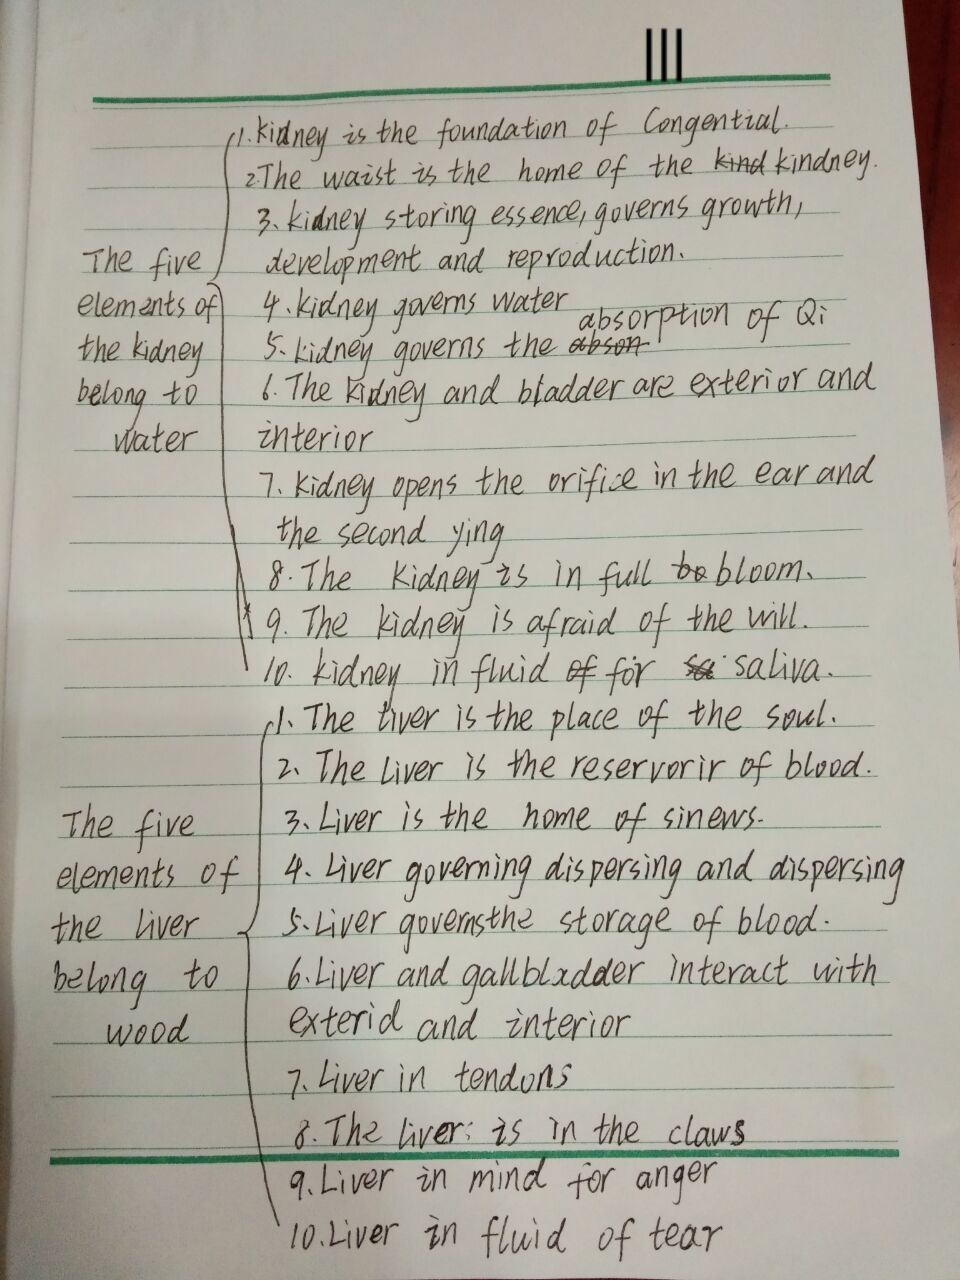 1. kidney is the foundation of Congential.
2. The waist is the home of the kind kindney.
3. kidney storing essence, governs growth,
development and reproduction.
4. kidney governs water
5. kidney governs the abson absorption of Qi
6. The kidney and bladder are exterior and
interior
7. kidney opens the orifice in the ear and
the second ying
8. The kidney is in full bo bloom.
9. The kidney is afraid of the will.
10. kidney in fluid of for sa saliva.
The five
elements of
the kidney
belong to
water
1. The liver is the place of the soul.
2. The Liver is the reservorir of blood.
3. Liver is the home of sinews.
4. Liver governing dispersing and dispersing
5. Liver governs the storage of blood.
6. Liver and gallbladder interact with
exterid and interior
7. Liver in tendons
8. The liver: is in the claws
9. Liver in mind for anger
10. Liver in fluid of tear
The five
elements of
the liver
belong to
wood